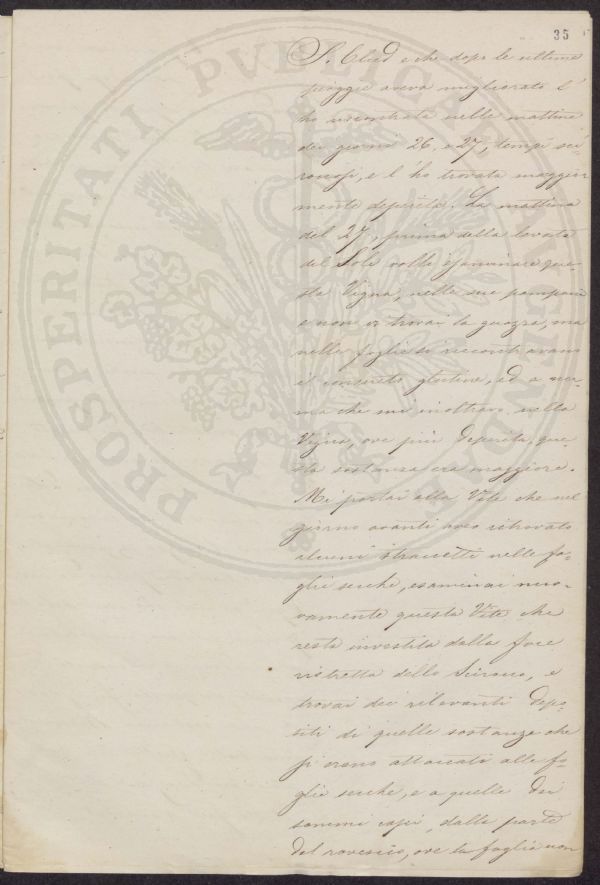 35
S. Clud e che dopo le ultime
piogge aveva migliorato l'
ho riscontrata nelle mattine
dei giorni 26, e 27, tempi sci-
roccosi, e l'ho trovata maggior
mente deperita. La mattina
del 27, prima della levata
del Sole volli esaminare que-
sta Vigna, nelle sue pampane
e non vi trovai la guazza, ma
nelle foglie si riscontravano
il consueto glutine, ed a ma-
no che mi inoltravo nella
Vigna, ove più deperita, que-
sta sostanza era maggiore.
Mi portai alla Vite che nel
giorno avanti avea ritrovato
alcuni straccetti nelle fo-
glie secche, esaminai nuo-
vamente questa Vite che
resta investita dalla foce
ristretta dello Scirocco, e
trovai dei rilevanti depo-
siti di quelle sostanze che
si erano attaccati alle fo-
glie secche, e a quelle dei
sommi capi, dalla parte
del rovescio, ove la foglia non
PROSPERITATI PVBLICAE AVGENDAE